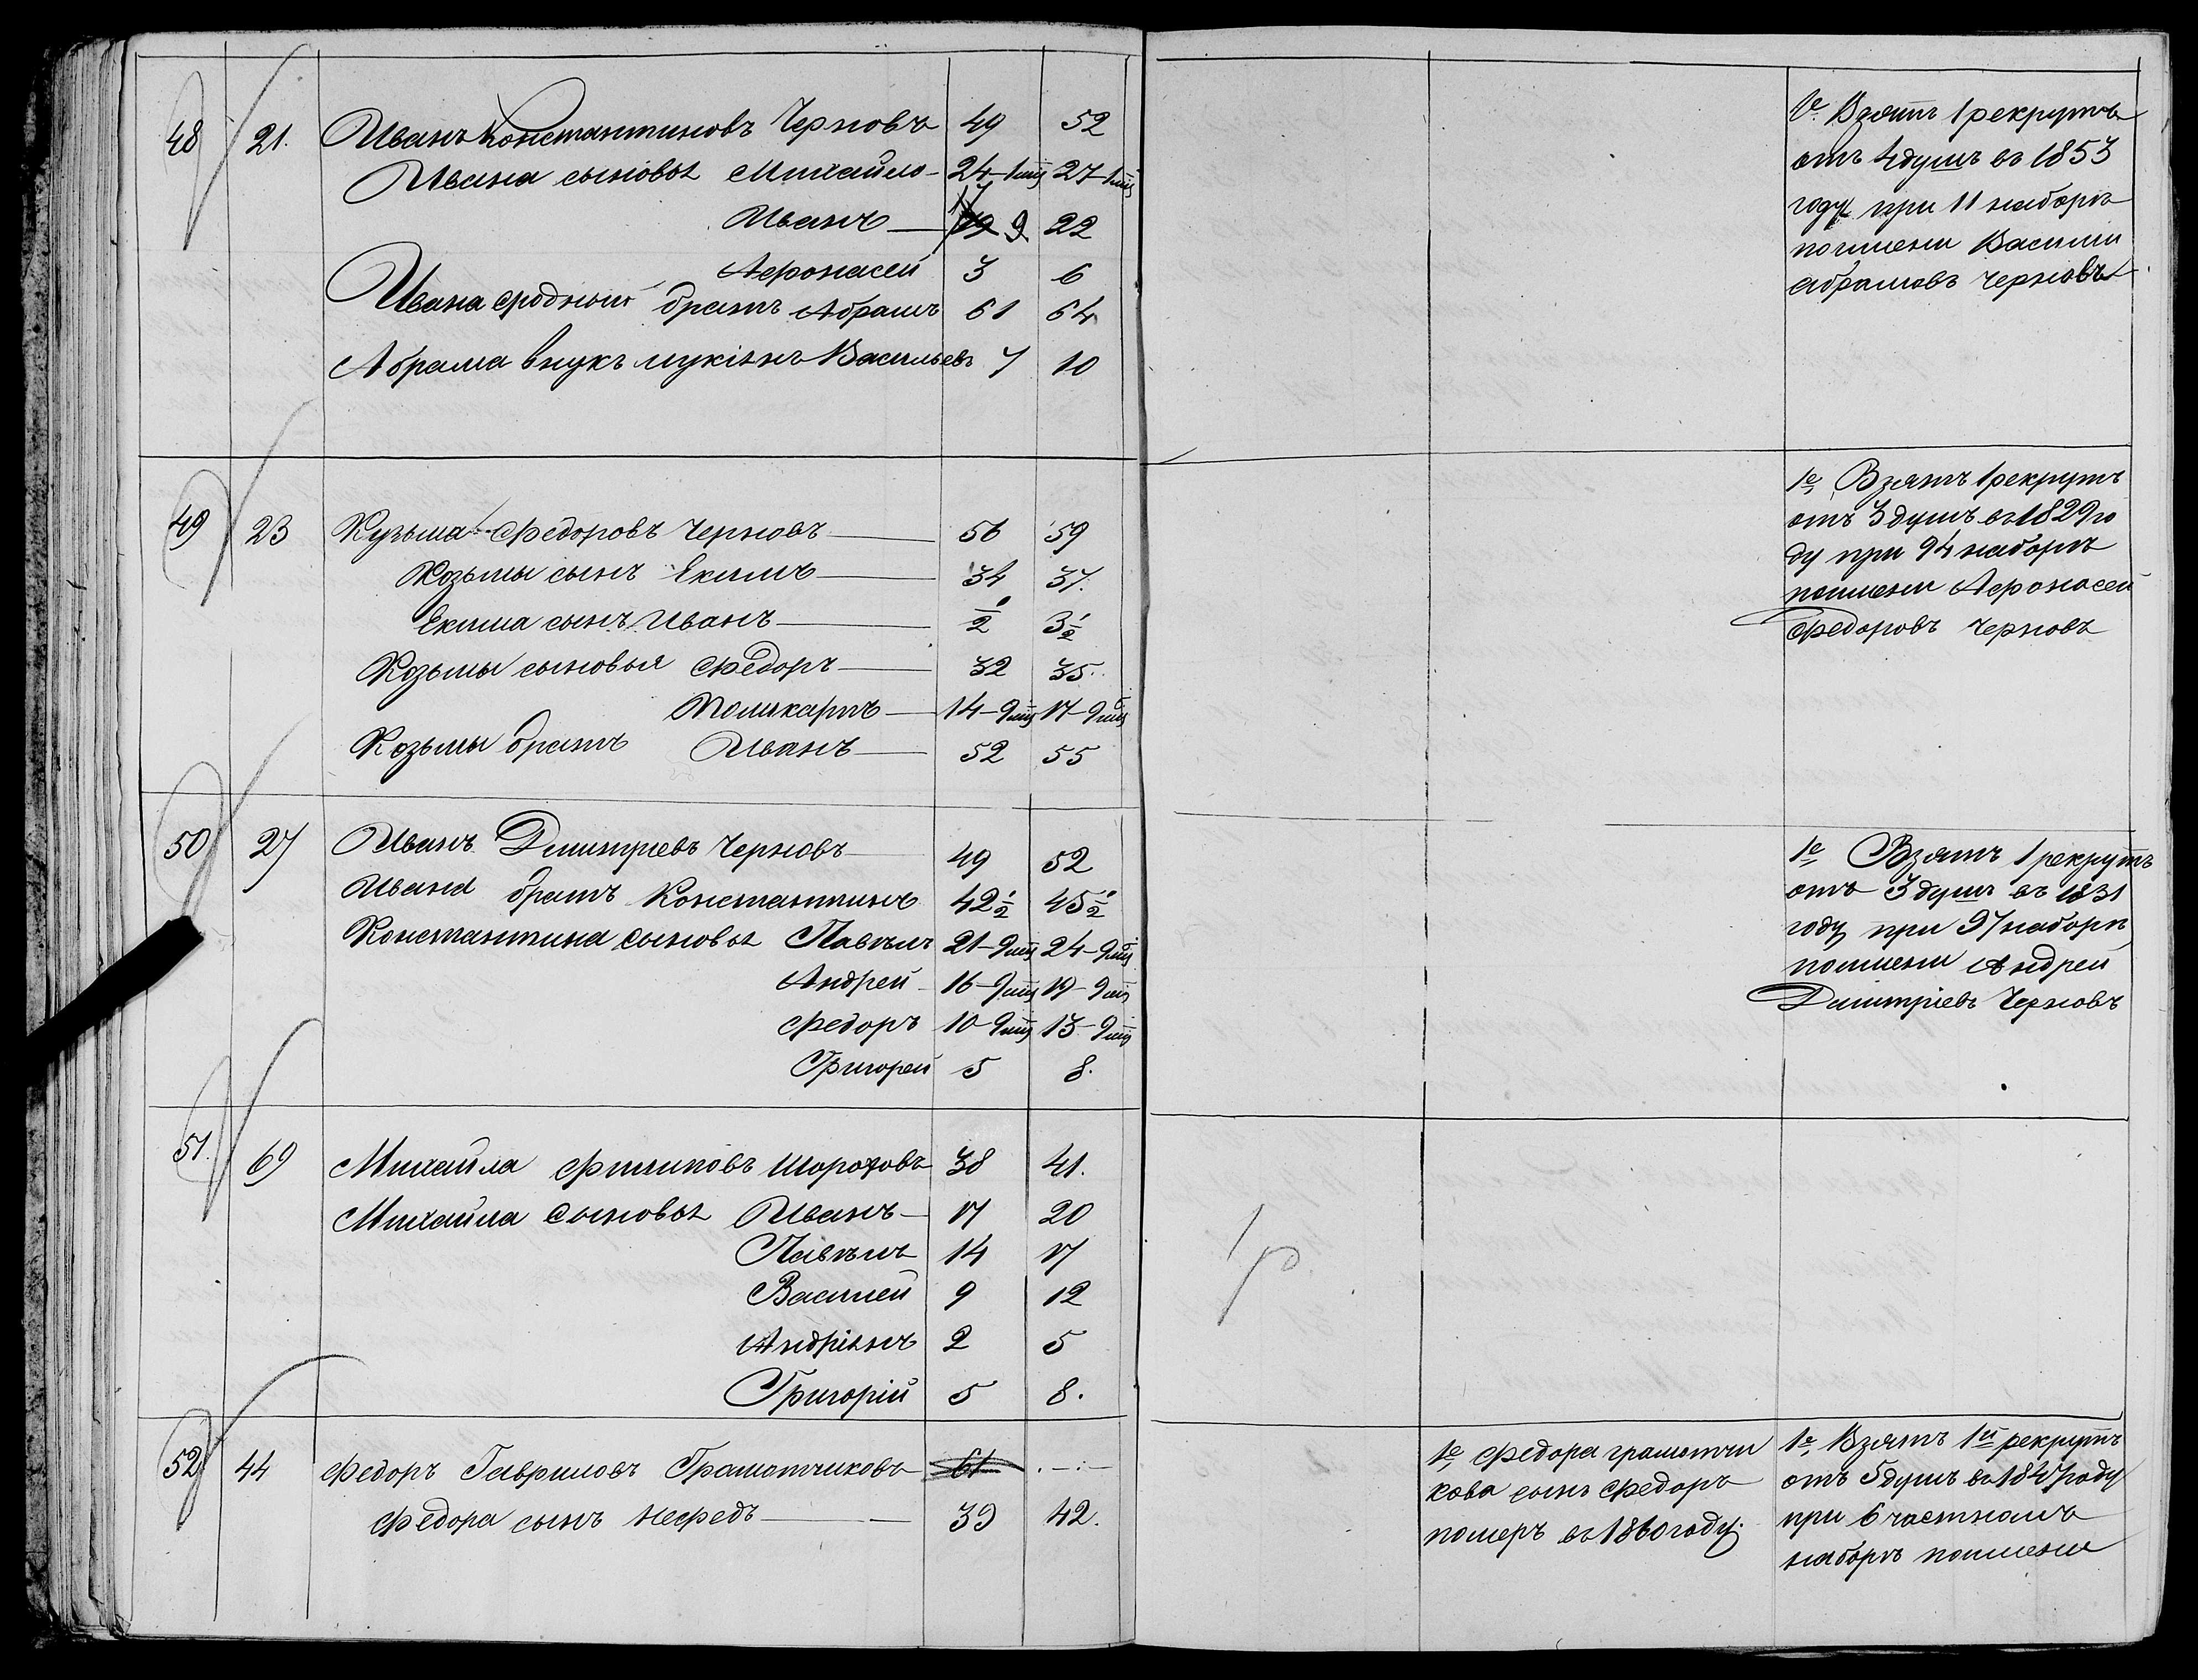 48 21. Иванъ Константиновъ Черновъ 49 52
Ивана сыновья Михайло 24-1мц 27-1мц
Иванъ 19 9 22
Афонасей 3 6
Ивана сродный братъ Абрамъ 61 64
Абрама внукъ Лукіянъ Васильевъ 7 10
49 23 Кузьма Федоровъ Черновъ 56 59
Козьмы сынъ Екимъ 34 37.
Екима сынъ Иванъ 1/2 3 1/2
Козьмы сыновья Федоръ 32 35.
Поликарпъ 14-9мц 17-9мц
Козьмы братъ Иванъ 52 55
50 27 Иванъ Дмитріевъ Черновъ 49 52
Ивана братъ Константинъ 42 1/2 45 1/2
Константина сыновья Павѣлъ 21-9мц 24-9мц
Андрей 16-9мц 19-9мц
Федоръ 10-9мц 13-9мц
Григорей 5 8.
51. 69 Михайла Филиповъ Шороховъ 38 41.
Михайла сыновья Иванъ 17 20
Павѣлъ 14 17
Василей 9 12
Андріянъ 2 5
Григорій 5 8.
52 44 Федоръ Гавриловъ Граматчиковъ 61
Федора сынъ Нефедъ 39 42.
1е Взятъ 1 рекрутъ
отъ 4 душъ въ 1853
году при 11 наборѣ
поимени Василій
Абрамовъ Черновъ.
1е Взятъ 1 рекрутъ
отъ 3 душъ въ 1829 го
ду при 94 наборѣ
поимени Афонасей
Федоровъ Черновъ
1е Взятъ 1 рекрутъ
отъ 3 душъ въ 1831
году при 97 наборѣ
поимени Андрей
Дмитріевъ Черновъ
1р
1е Федора Граматчи
кова сынъ Федоръ
померъ въ 1860 году.
1е Взятъ 1й рекрутъ
отъ 5 душъ въ 1847 году
при 6 частномъ
наборѣ поимени